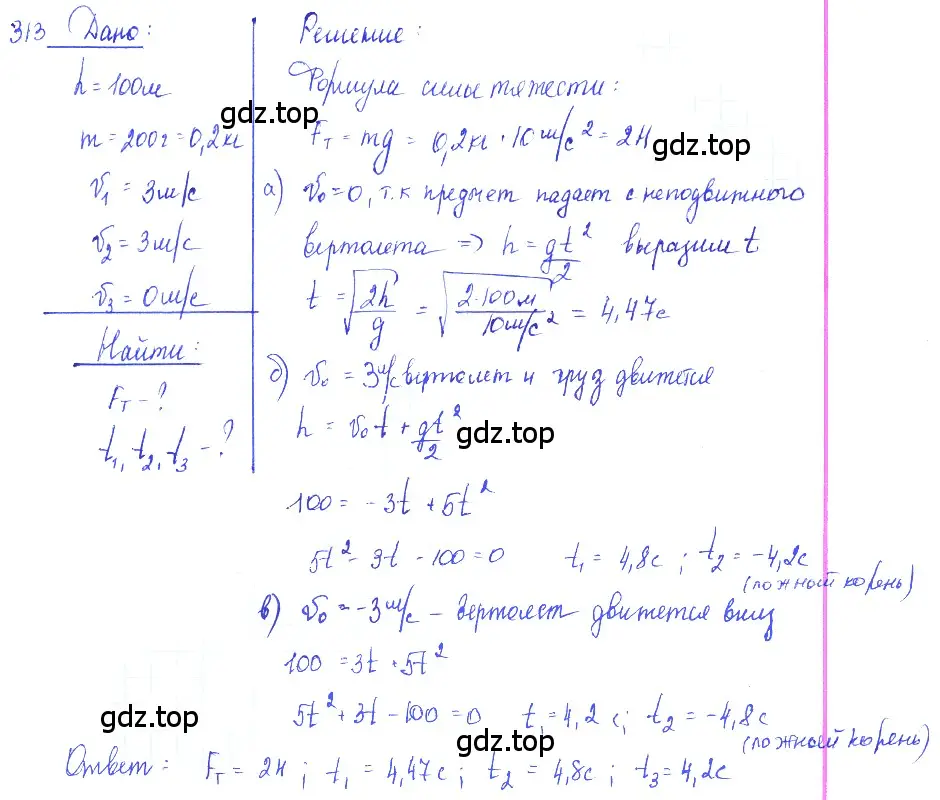 313 Дано:
h = 100м
m = 200г = 0,2кг
v₁ = 3м/с
v₂ = 3м/с
v₃ = 0м/с
Найти:
Fт - ?
t₁, t₂, t₃ - ?
Решение:
Формула силы тяжести:
Fт = mg = 0,2кг · 10м/с² = 2Н
а) v₀ = 0, т.к предмет падает с неподвижного
вертолета => h = gt²/2 выразим t
t = √(2h/g) = √(2·100м/10м/с²) = 4,47с
б) v₀ = 3м/с вертолет и груз движется
h = v₀t + gt²/2
100 = -3t + 5t²
5t² - 3t - 100 = 0 t₁ = 4,8с ; t₂ = -4,2с
(ложный корень)
в) v₀ = -3м/с - вертолет движется вниз
100 = 3t + 5t²
5t² + 3t - 100 = 0 t₁ = 4,2 с; t₂ = -4,8с
(ложный корень)
Ответ: Fт = 2Н ; t₁ = 4,47с ; t₂ = 4,8с ; t₃ = 4,2с
gdz.top
gdz.top
gdz.top
gdz.top
gdz.top